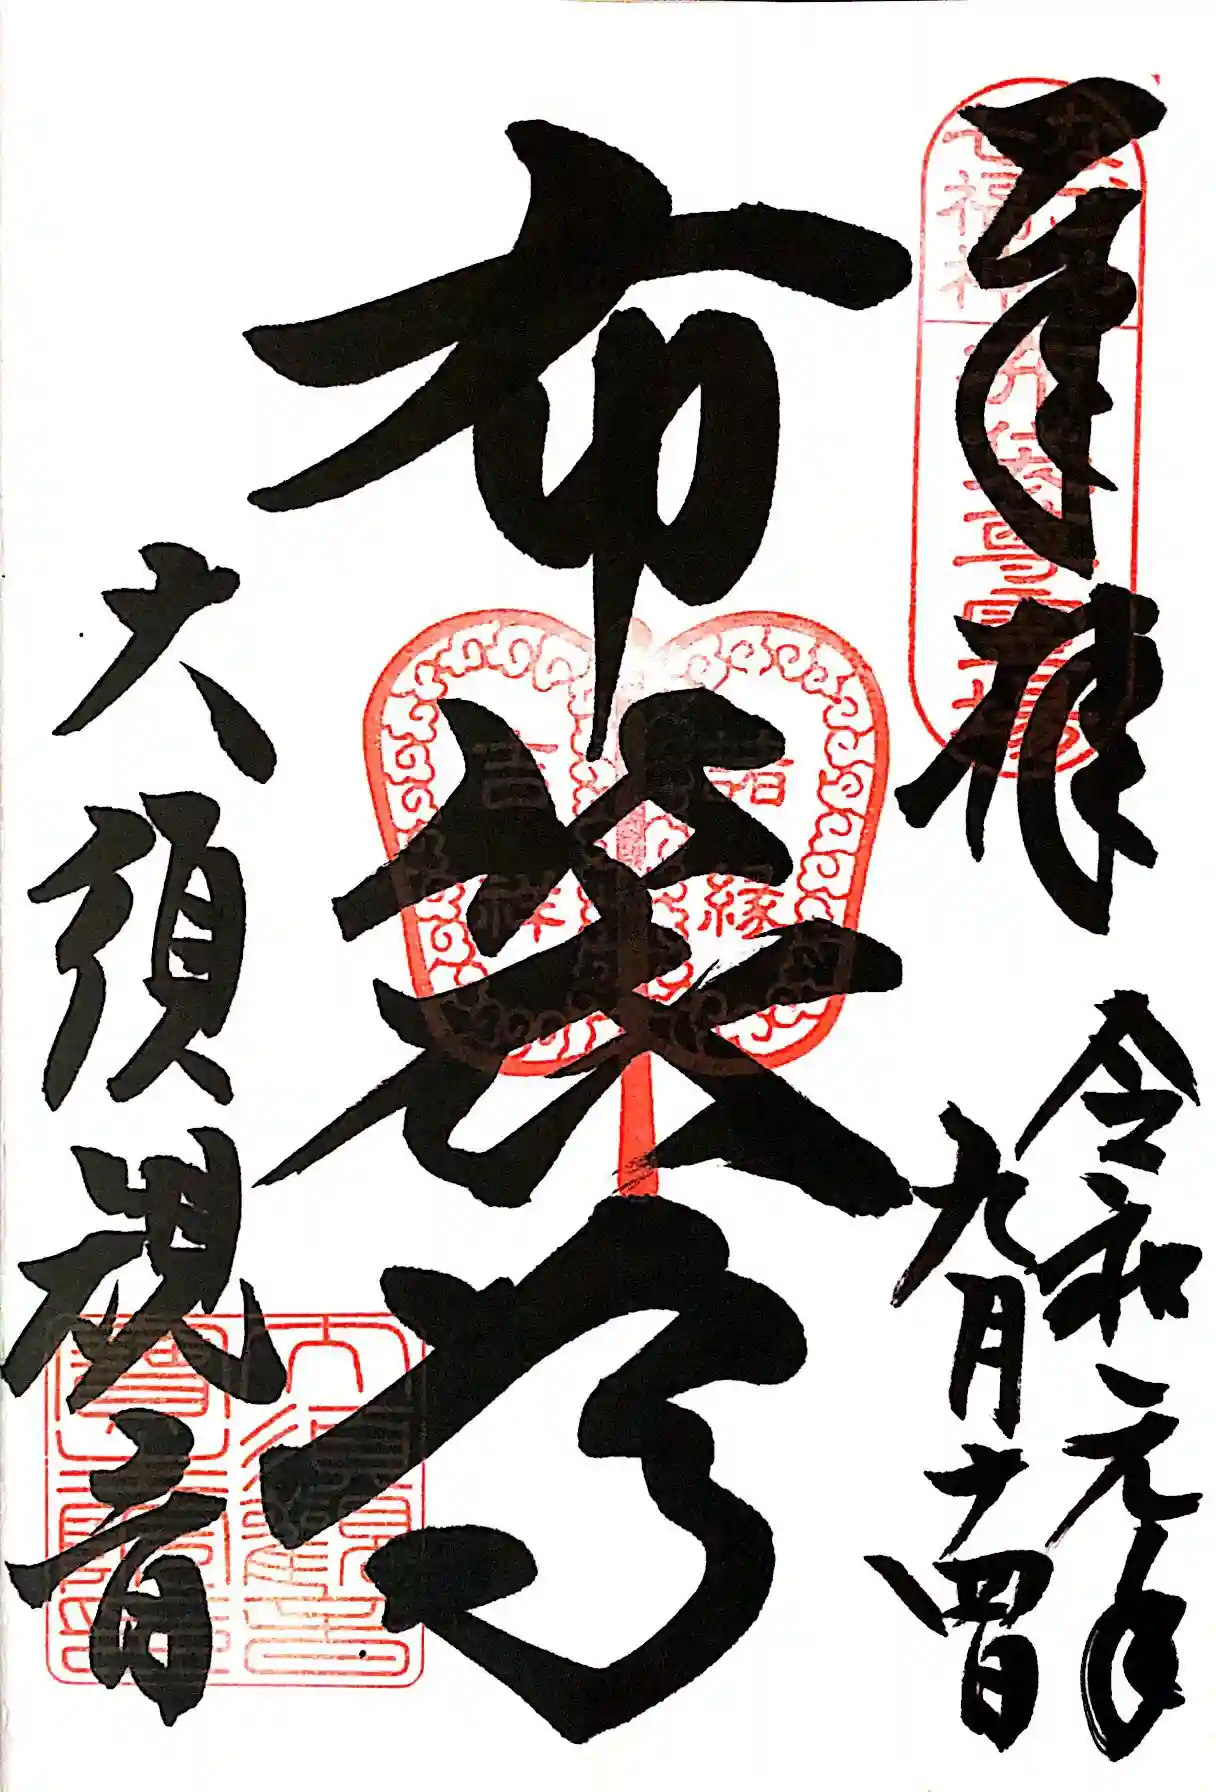 奉拝
令和元年
九月十四日
布袋尊
大須観音
七福神
吉祥
結縁